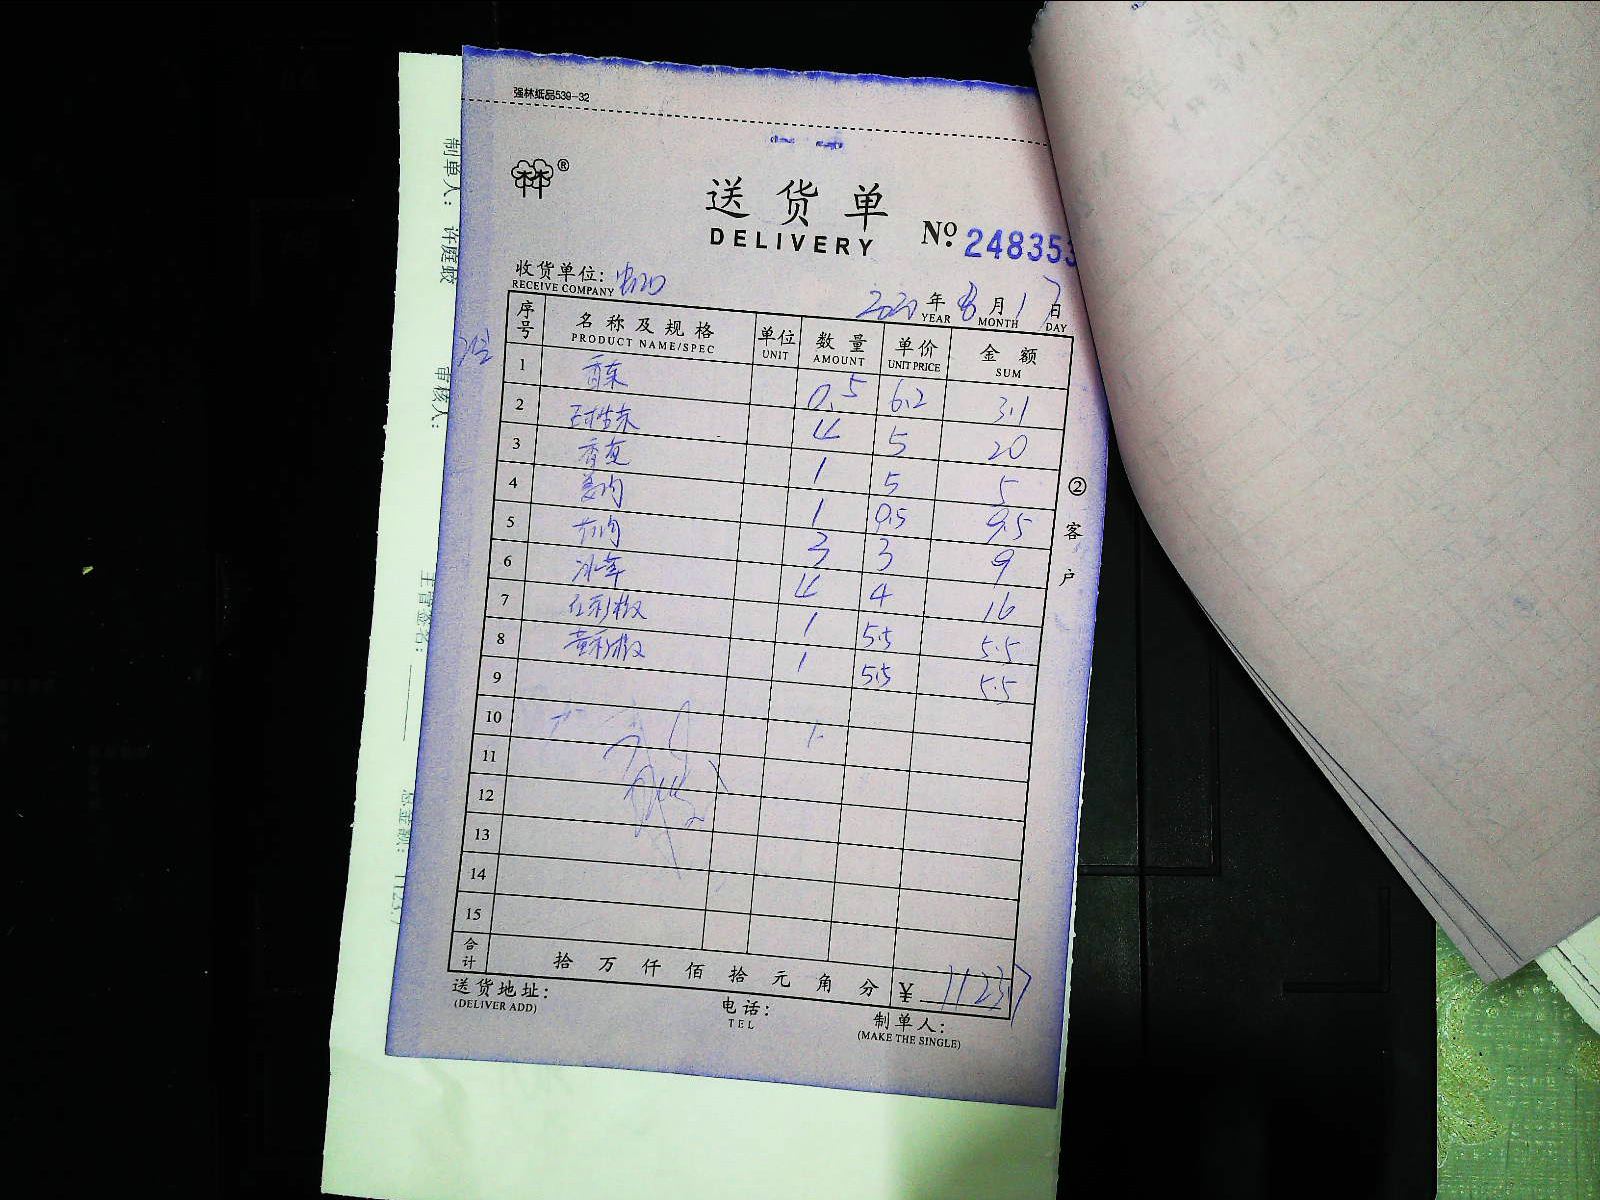 强林纸品539-32
®
送货单
DELIVERY
No. 248353
收货单位:
RECEIVE COMPANY
2020年 8月 17日
YEAR MONTH DAY
序号 名称及规格 单位 数量 单价 金额
PRODUCT NAME/SPEC UNIT AMOUNT UNIT PRICE SUM
1 香菜 0.5 6.2 3.1
2 4 5 20
3 1 5 5
4 姜肉 1 9.5 9.5
5 3 3 9
6 冰草 4 4 16
7 红彩椒 1 5.5 5.5
8 黄彩椒 1 5.5 5.5
9
10
11
12
13
14
15
合计 拾万仟佰拾元角分 ¥ 1123.7
送货地址:
(DELIVER ADD)
电话:
TEL
制单人:
(MAKE THE SINGLE)
②客户
制单人:
审核人:
主管签名:
总金额: 1123.7